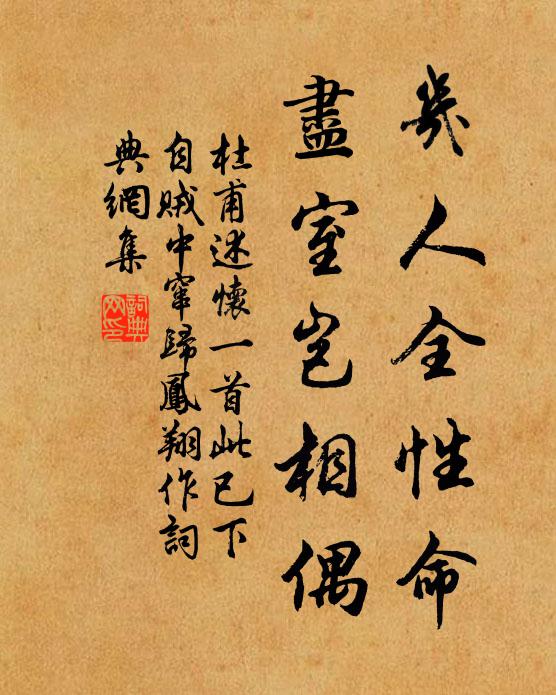 幾人全性命
盡室豈相偶
杜甫述懷一首此已下
自賊中竄歸鳳翔作詞
典網集
詞典
网印